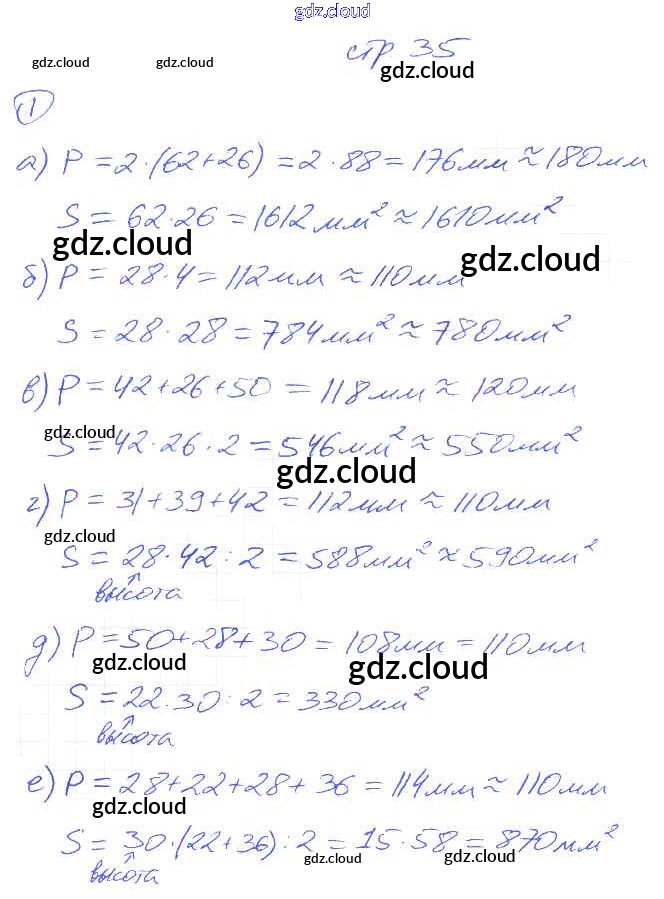 gdz.cloud
стр 35
gdz.cloud gdz.cloud gdz.cloud
1
а) P = 2·(62+26) = 2·88 = 176мм ≈ 180мм
S = 62·26 = 1612мм² ≈ 1610мм²
gdz.cloud gdz.cloud
б) P = 28·4 = 112мм ≈ 110мм
S = 28·28 = 784мм² ≈ 780мм²
в) P = 42+26+50 = 118мм ≈ 120мм
gdz.cloud
S = 42·26·2 = 546мм² ≈ 550мм²
gdz.cloud
г) P = 31+39+42 = 112мм ≈ 110мм
gdz.cloud
S = 28·42:2 = 588мм² ≈ 590мм²
высота
д) P = 50+28+30 = 108мм = 110мм
gdz.cloud gdz.cloud
S = 22·30:2 = 330мм²
высота
е) P = 28+22+28+36 = 114мм ≈ 110мм
gdz.cloud
S = 30·(22+36):2 = 15·58 = 870мм²
gdz.cloud gdz.cloud
высота